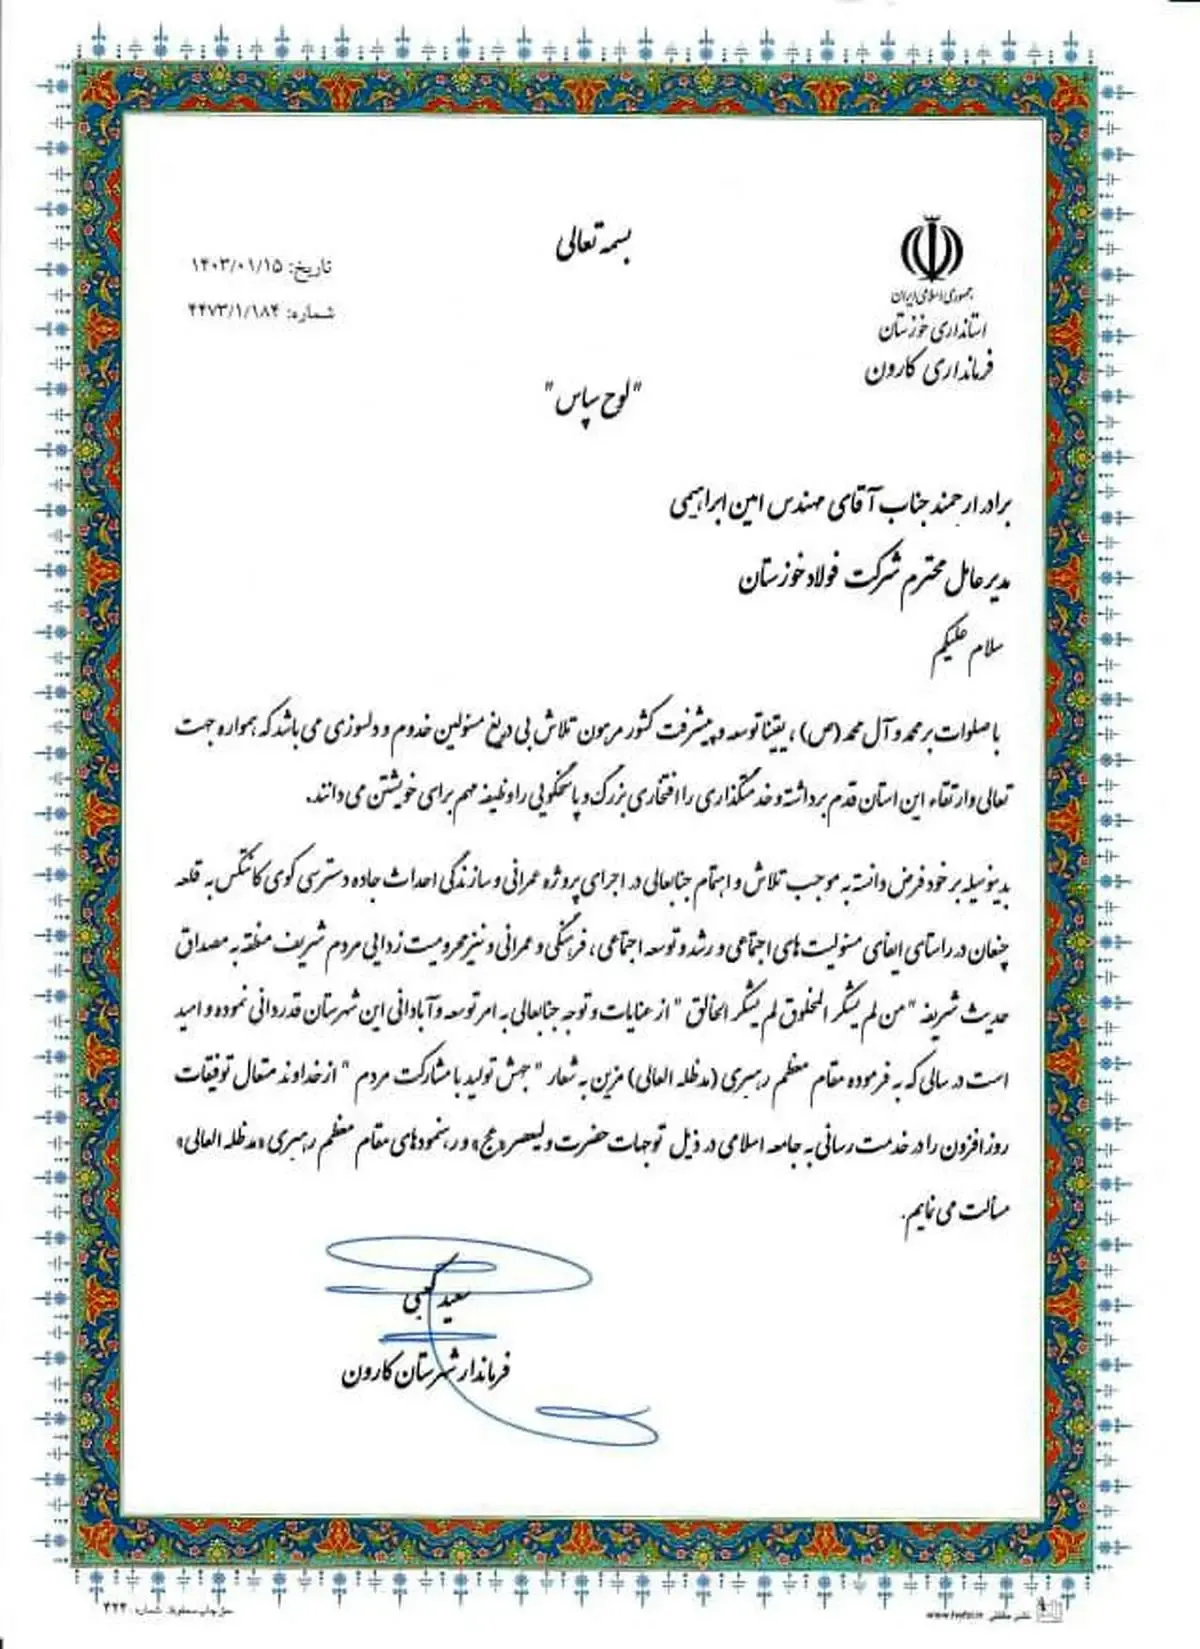 بسمه تعالی
جمهوری اسلامی ایران
استانداری خوزستان
فرمانداری کارون
تاریخ: ۱۴۰۳/۰۱/۱۵
شماره: ۴۴۷۳/۱/۱۸۴
"لوح سپاس"
برادر ارجمند جناب آقای مهندس امین ابراهیمی
مدیرعامل محترم شرکت فولاد خوزستان
سلام علیکم
با صلوات بر محمد و آل محمد (ص) ، یقینا توسعه و پیشرفت کشور مرهون تلاش بی دریغ مسئولین خدوم و دلسوزی می باشد که همواره جهت
تعالی و ارتقاء این استان قدم برداشته و خدمتگذاری را افتخاری بزرگ و پاسخگویی را وظیفه مهم برای خویشتن می دانند.
بدینوسیله بر خود فرض دانسته به موجب تلاش و اهتمام جنابعالی در اجرای پروژه عمرانی و سازندگی احداث جاده دسترسی کوی کانتکس به قلعه
چنعان در راستای ایفای مسئولیت های اجتماعی و رشد و توسعه اجتماعی ، فرهنگی و عمرانی و نیز محرومیت زدایی مردم شریف منطقه به مصداق
حدیث شریفه "من لم یشکر المخلوق لم یشکر الخالق" از عنایات و توجه جنابعالی به امر توسعه و آبادانی این شهرستان قدردانی نموده و امید
است در سالی که به فرموده مقام معظم رهبری (مدظله العالی) مزین به شعار "جهش تولید با مشارکت مردم" از خداوند متعال توفیقات
روز افزون را در خدمت رسانی به جامعه اسلامی در ذیل توجهات حضرت ولیعصر «عج» و رهنمودهای مقام معظم رهبری «مدظله العالی»
مسألت می نمایم.
سعید کعبی
فرماندار شهرستان کارون
حق چاپ محفوظ. شماره: ۴۲۴